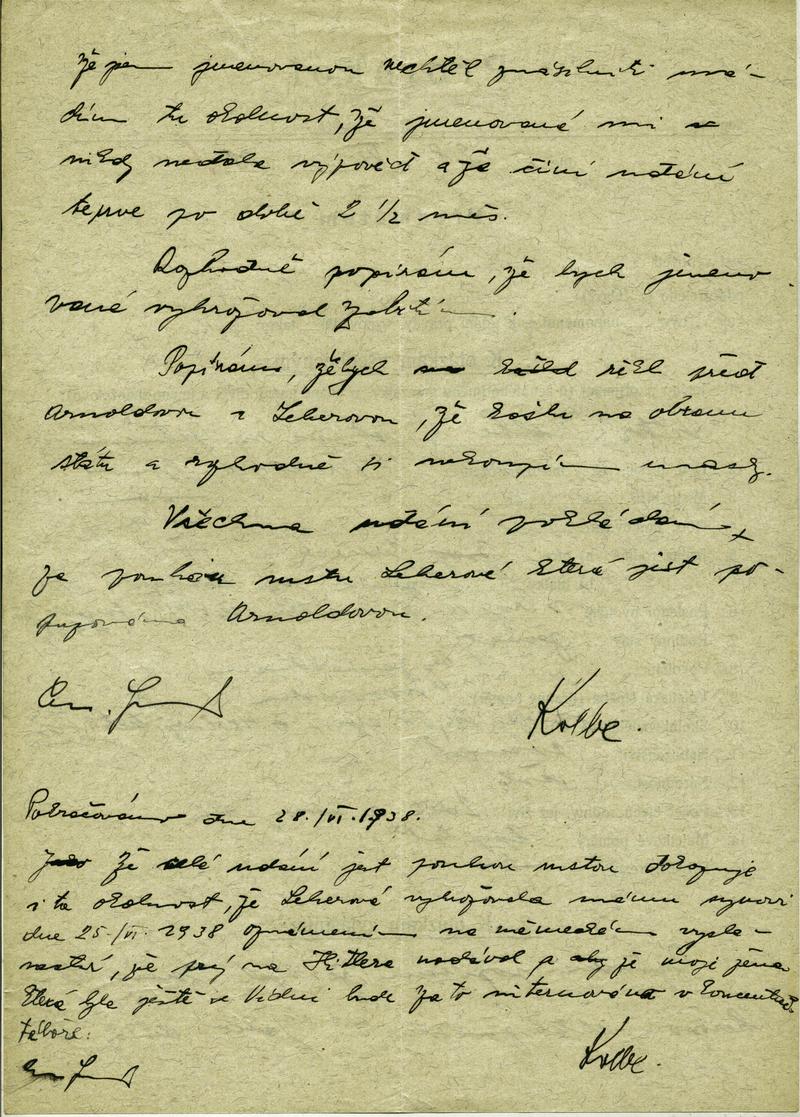 že jsem jmenovanou nechtěl znásilniti uvá-
dím tu okolnost, že jmenovaná mi
nikdy nedala výpověď a že činí udání
teprve po době 2 1/2 měs.
Rozhodně popírám, že bych jmeno
vané vyhrožoval zabitím.
Popírám, žebych řekl před
Arnoldovou i Leherovou, že kašlu na obranu
státu a rozhodně si nekoupím masky.
Všechna udání pokládám
za pouhou mstu Leherové která jest po-
puzována Arnoldovou.
Kolbe.
Pokračováno dne 28./VI.1938.
že celé udání jest pouhou mstou dokazuje
i ta okolnost, že Leherová vyhrožovala mému synovi
dne 25./VI. 1938 oznámením na německém vysla-
nectví, že prý na Hitlera nadával a že moje žena
která byla ještě ve Vídni bude za to internována v koncentrač
táboře.
Kolbe.